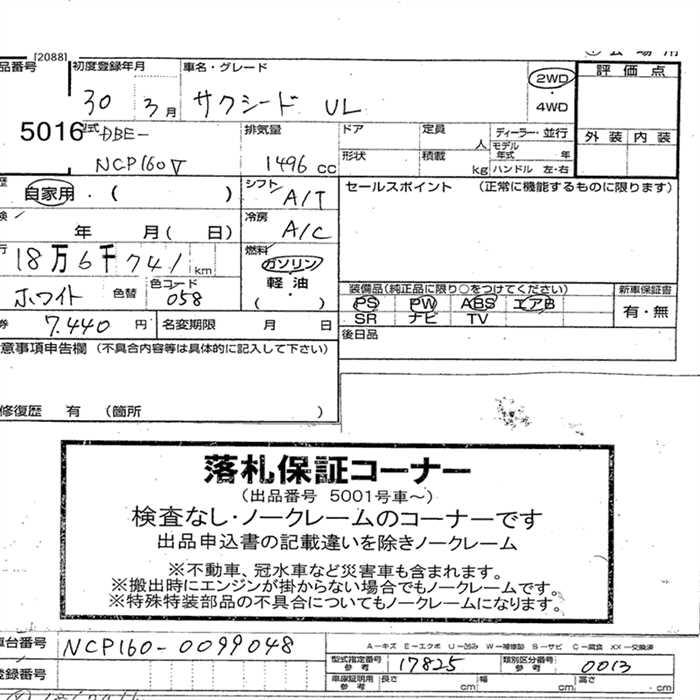 [2088]
品番号 初度登録年月 車名・グレード 2WD 評価点
30 3月 サクシード UL 4WD
5016 DBE- 排気量 ドア 定員 人 ディーラー・並行 外装 内装
NCP160V 1496 cc 形状 積載 kg モデル年式 年 ハンドル 左・右
歴 自家用・( ) シフト A/T セールスポイント (正常に機能するものに限ります)
検 年 月( 日) 冷房 A/C
行 18万6千741 km 燃料 ガソリン 軽油 ( ・ )
ホワイト 色替 色コード 058 装備品(純正品に限り○をつけてください) 新車保証書
PS PW ABS エアB 有・無
券 7.440 円 名変期限 月 日 SR ナビ TV
後日品
意事項申告欄 (不具合内容等は具体的に記入して下さい)
修復歴 有 (箇所 )
落札保証コーナー
(出品番号 5001号車~)
検査なし・ノークレームのコーナーです
出品申込書の記載違いを除きノークレーム
※不動車、冠水車など災害車も含まれます。
※搬出時にエンジンが掛からない場合でもノークレームです。
※特殊特装部品の不具合についてもノークレームになります。
車台番号 NCP160-0099048 A－キズ E－エクボ U－凹み W－補修跡 S－サビ C－腐食 XX－交換済
型式指定番号 参考 17825 類別区分番号 参考 0013
登録番号 車庫証明用 参考 長さ cm 幅 cm 高さ cm